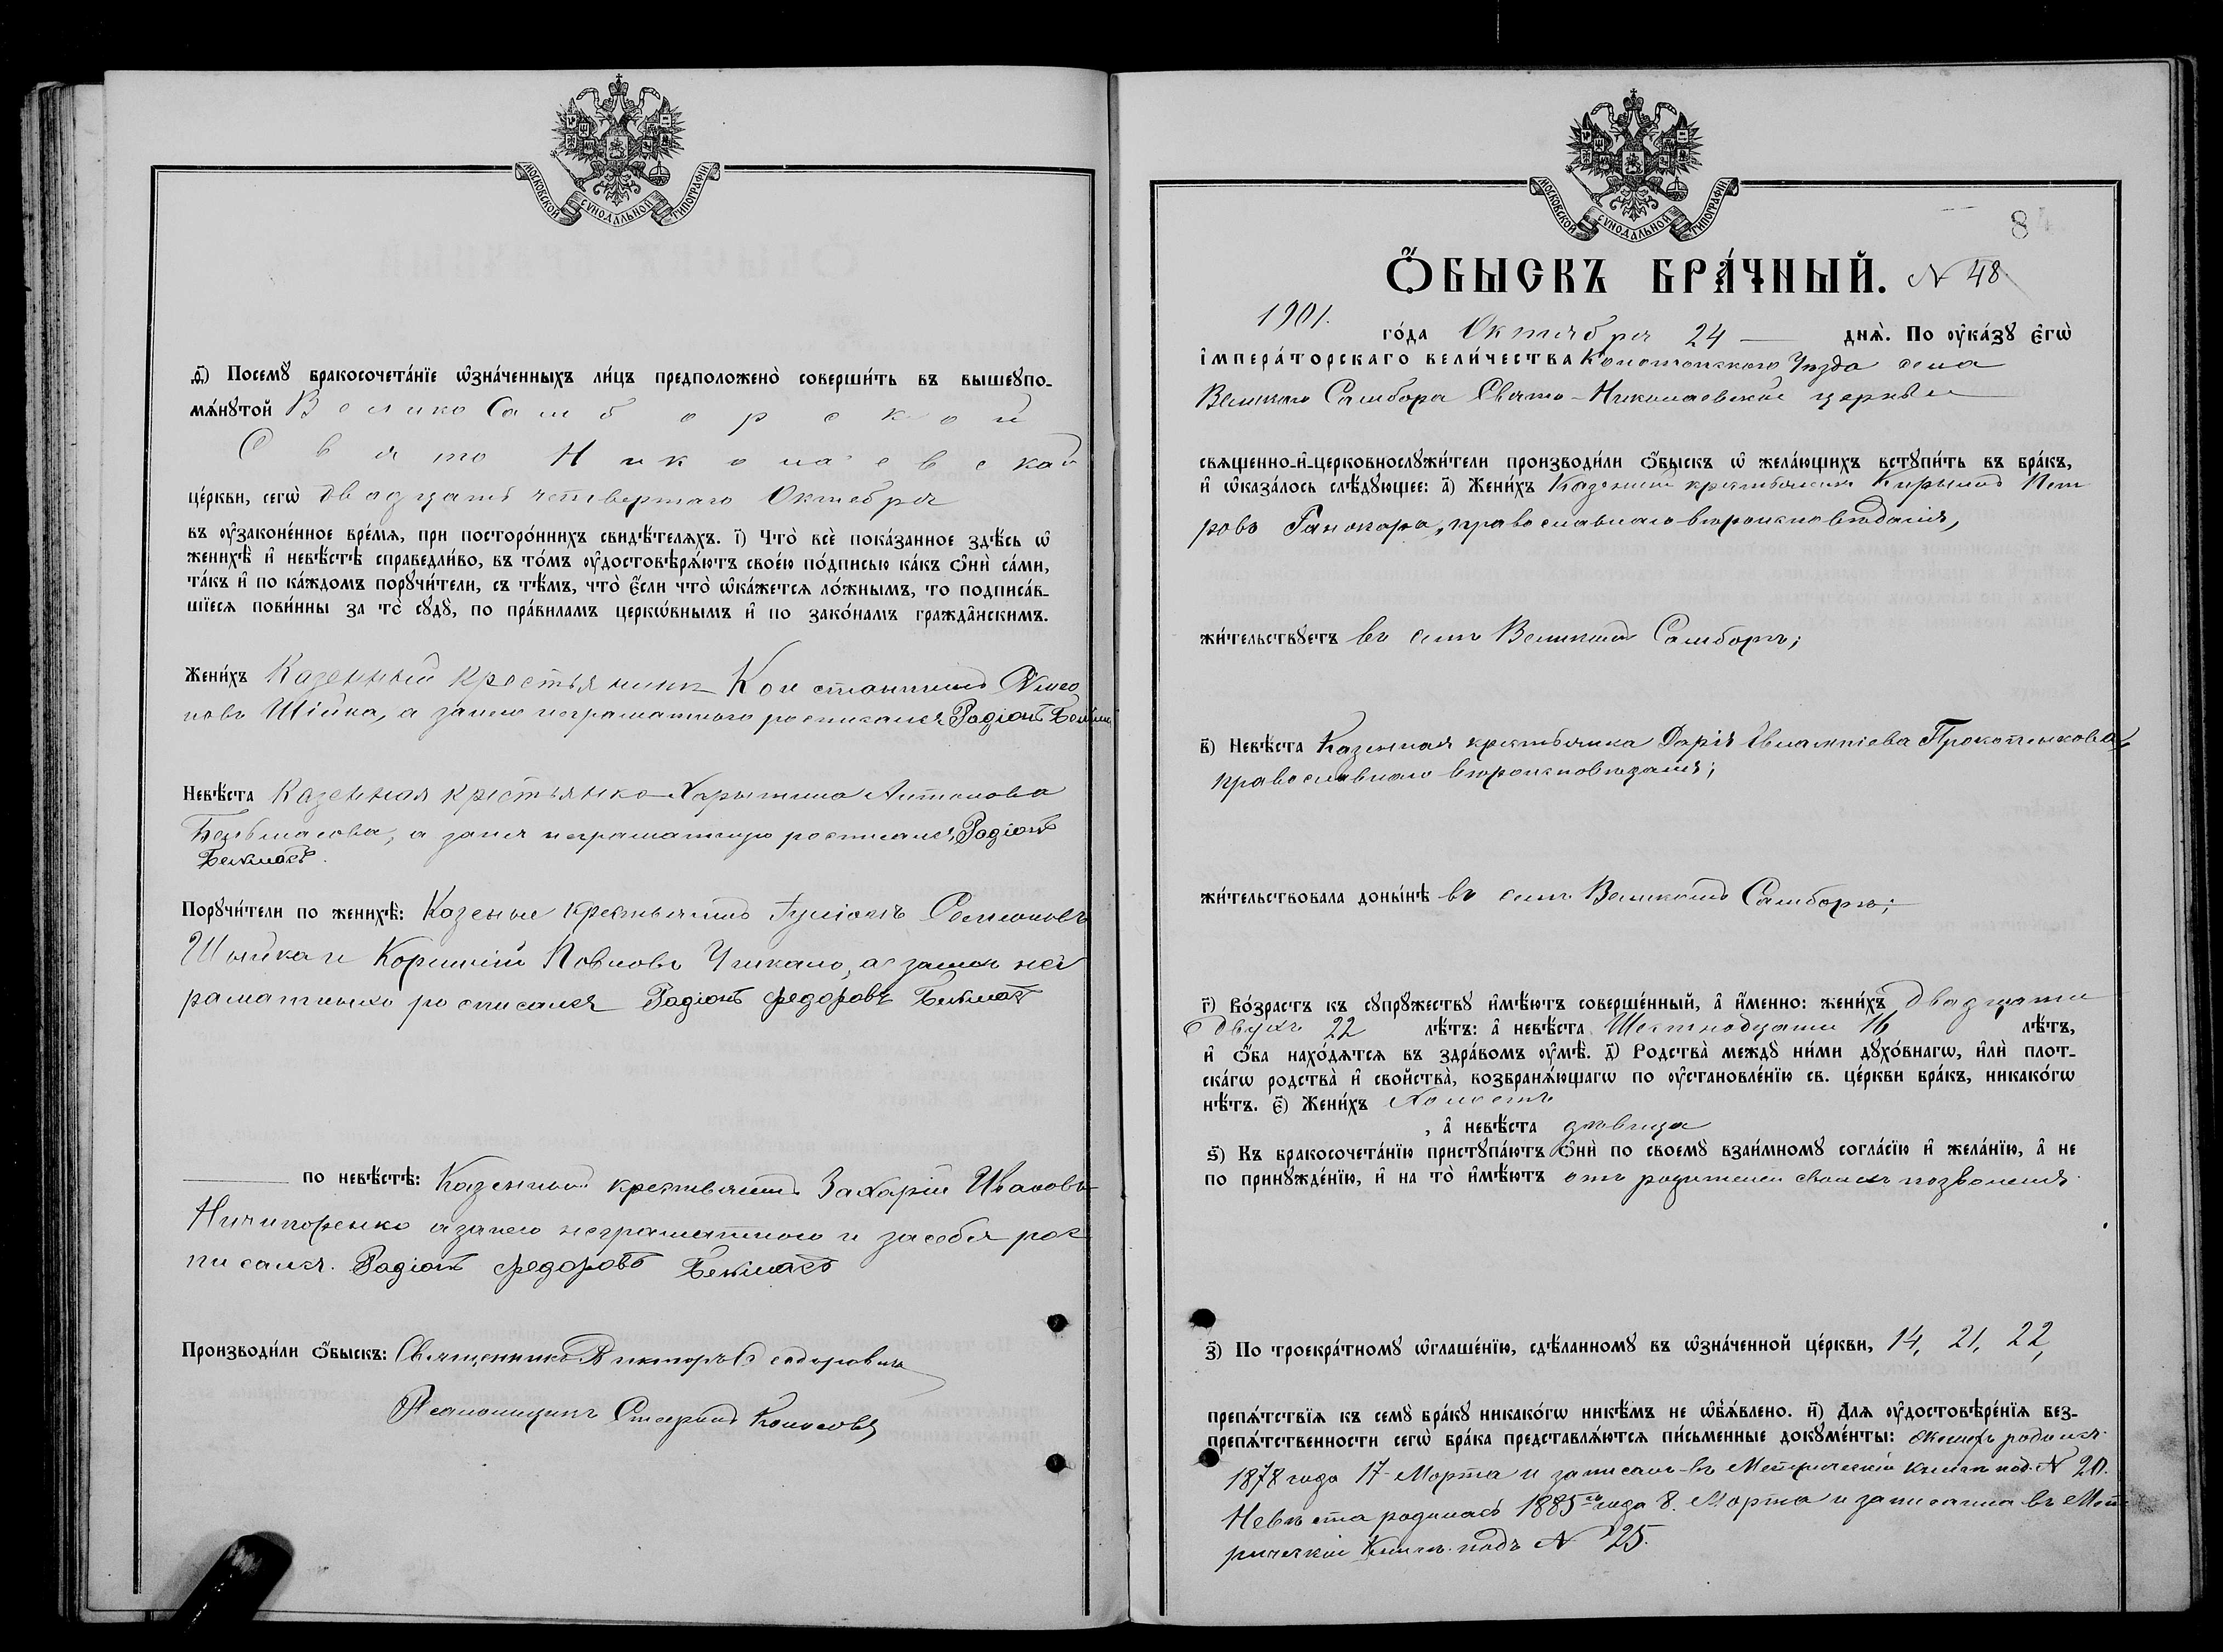 МОСКОВСКОЙ СѴНОДАЛЬНОЙ ТИПОГРАФІИ
д҃і) Посемꙋ̀ бракосочета́нїе ѡ҆зна́ченныхъ ли́цъ предположено̀ соверши́ть въ вышеꙋпо-
мѧ́нꙋтой Велико Самборской
Свято Николаевской
це́ркви, сегѡ̀ двадцать четвертаго Октебря
въ ᲂу҆зако́ненное вре́мѧ, при посторо́ннихъ свидѣ́телѧхъ. і҃) Что̀ всѐ пока́занное здѣ́сь ѡ҆
женихѣ̀ и҆ невѣ́стѣ справедли́во, въ то́мъ ᲂу҆достовѣрѧ́ютъ свое́ю по́дписью ка́къ ѻ҆нѝ са́ми,
та́къ и҆ по ка́ждомъ порꙋчи́тели, съ тѣ́мъ, что̀ є҆́сли что̀ ѡ҆ка́жетсѧ ло́жнымъ, то подписа́в-
шїесѧ пови́нны за то̀ сꙋдꙋ̀, по пра́виламъ церкѡ́внымъ и҆ по зако́намъ гражда́нскимъ.
Жени́хъ Казенный крестьянинъ Константинъ Симео
новъ Шійка, а занего неграматного росписался Радіонъ
Невѣ́ста Казенная крестьянка Харытина Антонова
а занея неграматную росписался, Радіонъ
Порꙋчи́тели по женихѣ̀: Казеные крестьянинъ Семионовъ
Шыйка и Корнилій Павловъ Чикало, а занихъ нег
раматныхъ росписался Радіонъ Федоровъ
по невѣ́стѣ: Казенный крестьянинъ Захарій Ивановъ
Ничипоренко а занего неграматного и засебя рос
писался. Радіонъ Федоровъ
Производи́ли ѻ҆́быскъ: Священникъ Викторъ Сидоровичъ
Псаломщикъ Колосовъ
МОСКОВСКОЙ СѴНОДАЛЬНОЙ ТИПОГРАФІИ
84
Ѻ҆́БЫСКЪ БРА́ЧНЫЙ. N 48
1901.
го́да Октября 24 — днѧ̀. По ᲂу҆ка́зꙋ є҆гѡ̀
і҆мпера́торскаго вели́чества Конотопского Уѣзда села
Великого Самбора Свято-Николаевской церквы
свѧщенно-и҆-церковнослꙋжи́тели производи́ли ѻ҆́быскъ ѡ҆ жела́ющихъ встꙋпи́ть въ бра́къ,
и҆ ѡ҆каза́лось слѣ́дꙋющее: а҃) Жени́хъ Казенный крестьянинъ Кирылъ Пет
ровъ православнаго вѣроисповѣданія,
жи́тельствꙋетъ въ селѣ Великомъ Самборѣ;
в҃) Невѣ́ста Казенная крестьянка Дарія Евлампіева Прокопенкова,
православного вѣроисповѣданія;
жи́тельствовала доны́нѣ въ селѣ Великомъ Самборѣ;
г҃) Во́зрастъ къ сꙋпрꙋ́жествꙋ и҆мѣ́ютъ соверше́нный, а҆ и҆́менно: жени́хъ двадцати
двухъ 22 лѣ́тъ: а҆ невѣ́ста Шестнадцати 16 лѣ́тъ,
и҆ ѻ҆́ба нахо́дѧтсѧ въ здра́вомъ ᲂу҆мѣ̀. д҃) Родства̀ междꙋ̀ ни́ми дꙋхо́внагѡ, и҆лѝ плот-
ска́гѡ родства̀ и҆ свойства̀, возбранѧ́ющагѡ по ᲂу҆становле́нїю св. це́ркви бра́къ, никако́гѡ
нѣ́тъ. є҃) Жени́хъ Холостъ
, а҆ невѣ́ста дѣвица
ѕ҃) Къ бракосочета́нїю пристꙋпа́ютъ ѻ҆нѝ по своемꙋ̀ взаи́мномꙋ согла́сїю и҆ жела́нїю, а҆ не
по принꙋжде́нїю, и҆ на то̀ и҆мѣ́ютъ отъ родителей своихъ позволенія.
з҃) По троекра́тномꙋ ѡ҆глаше́нїю, сдѣ́ланномꙋ въ ѡ҆зна́ченной це́ркви, 14, 21, 22,
препѧ́тствїѧ къ семꙋ̀ бра́кꙋ никако́гѡ никѣ́мъ не ѡ҆бъѧ́влено. и҃) Длѧ ᲂу҆достовѣре́нїѧ без-
препѧ́тственности сегѡ̀ бра́ка представлѧ́ютсѧ пи́сьменные докꙋме́нты: Женихъ родился
1878 года 17 Марта и записанъ въ Метрической книгѣ под. N 20.
Невѣста родилась 1885го года 8. Марта и записанна въ Мет
рической Книгѣ подъ N 25.